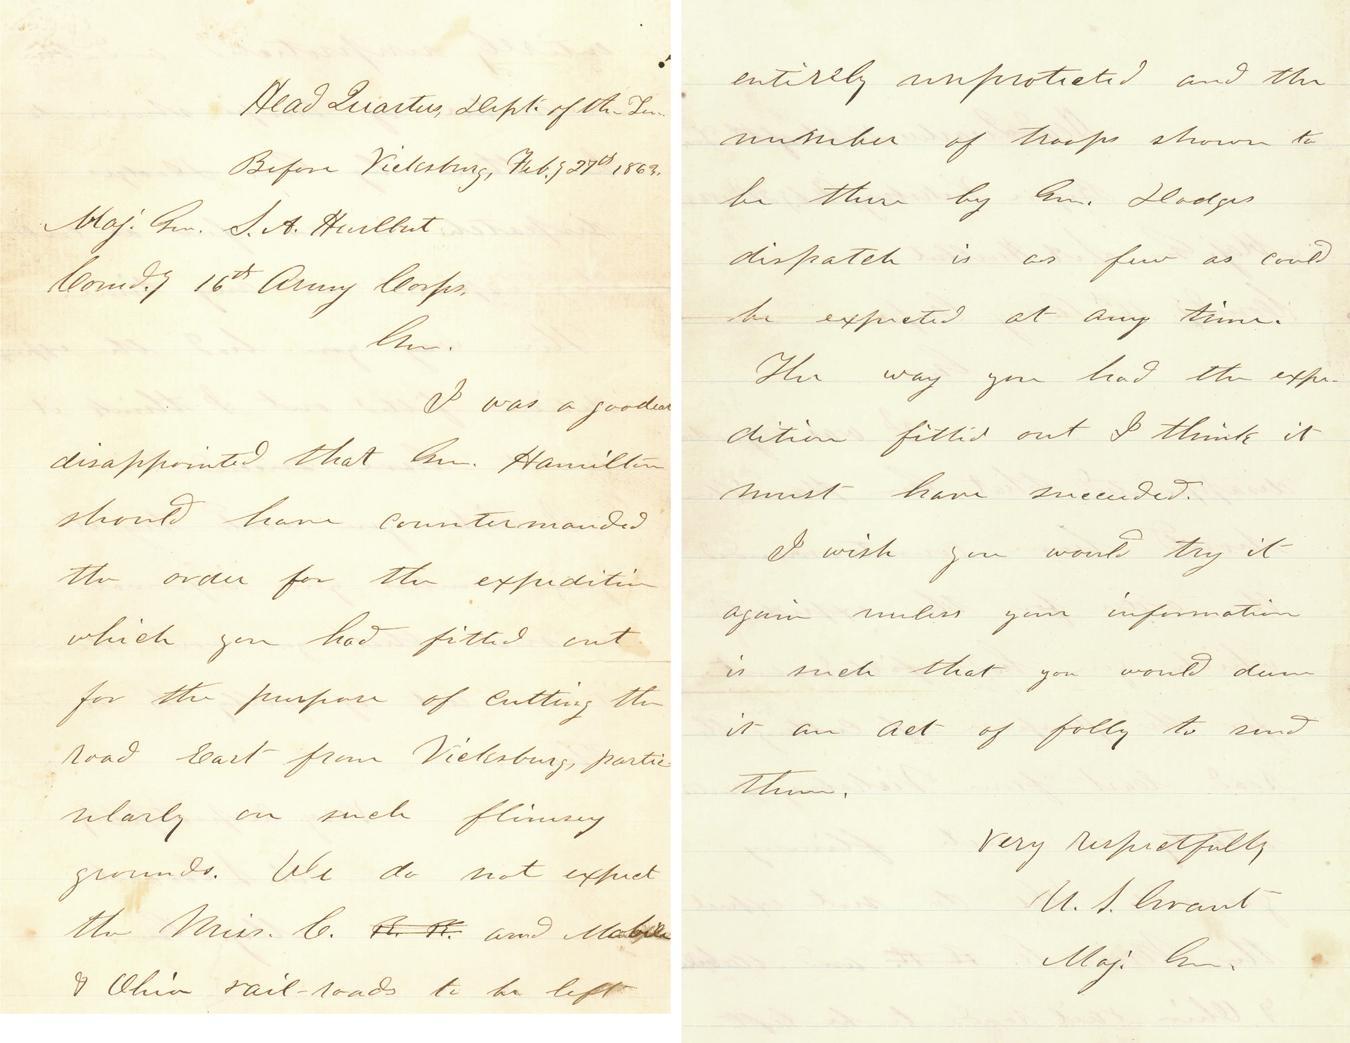 Head Quarters, Dept. of the Ten.
Before Vicksburg, Feb.y 27th 1863.
Maj. Gen. S. A. Hurlbut
Comd.g 16th Army Corps,
Gen.
I was a good eal
disappointed that Gen. Hamilton
should have countermanded
the order for the expedition
which you had fitted out
for the purpose of cutting the
road East from Vicksburg, partic
ularly on such flimsey
grounds. We do not expect
the Miss. C. R. R. and Mobile
& Ohio rail-roads to be left
entirely unprotected and the
number of troops shown to
be there by Gen. Dodges
dispatch is as few as could
be expected at any time.
The way you had the expe-
dition fitted out I think it
must have succeeded.
I wish you would try it
again unless your information
is such that you would deem
it an act of folly to send
them.
Very respectfully
U. S. Grant
Maj. Gen.